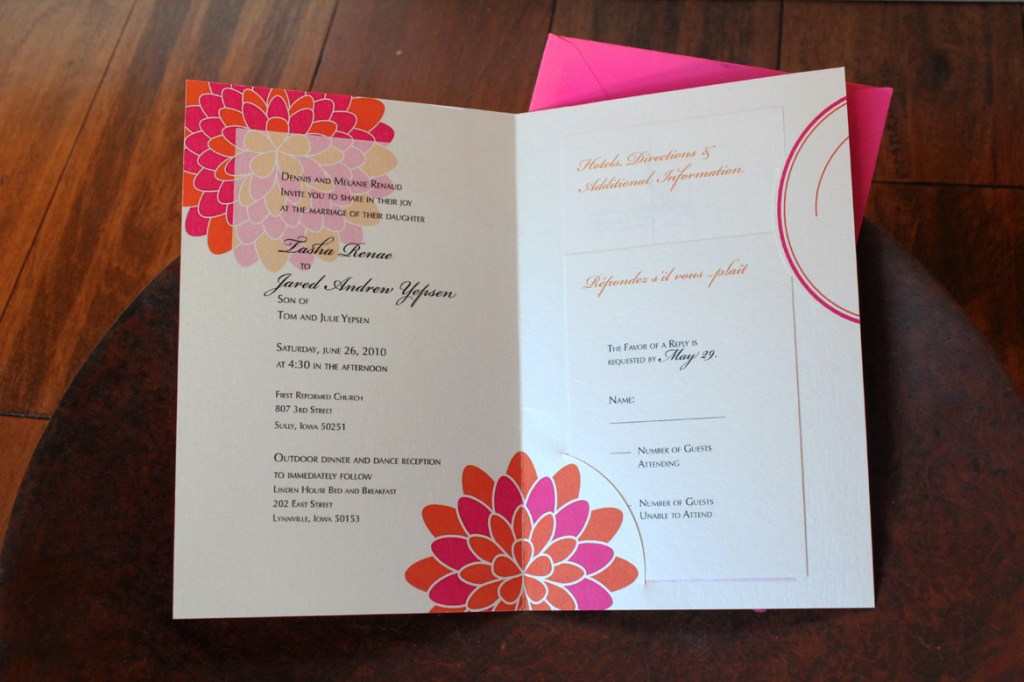 Dennis and Melanie Renaud
Invite you to share in their joy
at the marriage of their daughter
Tasha Renae
to
Jared Andrew Yepsen
Son of
Tom and Julie Yepsen
Saturday, june 26, 2010
at 4:30 in the afternoon
First Reformed Church
807 3rd Street
Sully, Iowa 50251
Outdoor dinner and dance reception
to immediately follow
Linden House Bed and Breakfast
202 East Street
Lynnville, Iowa 50153
Hotels, Directions &
Additional Information
Répondez s'il vous-plaît
The Favor of a Reply is
requested by May 29.
Name:
Number of Guests
Attending
Number of Guests
Unable to Attend